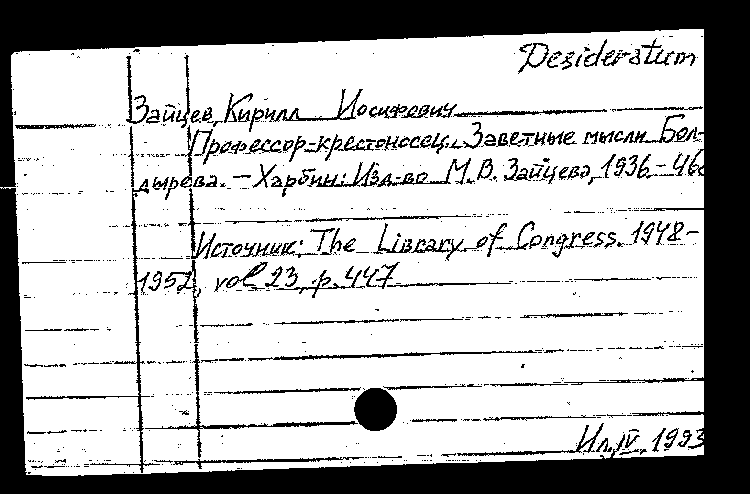 Desideratum
Зайцев, Кирилл Иосифович
Профессор-крестоносец. Заветные мысли Бол-
дырева. — Харбин: Изд-во М.В. Зайцева, 1936.- 46с
Источник: The Library of Congress. 1948-
1952, vol 23, p. 447
Ил, IV, 1993